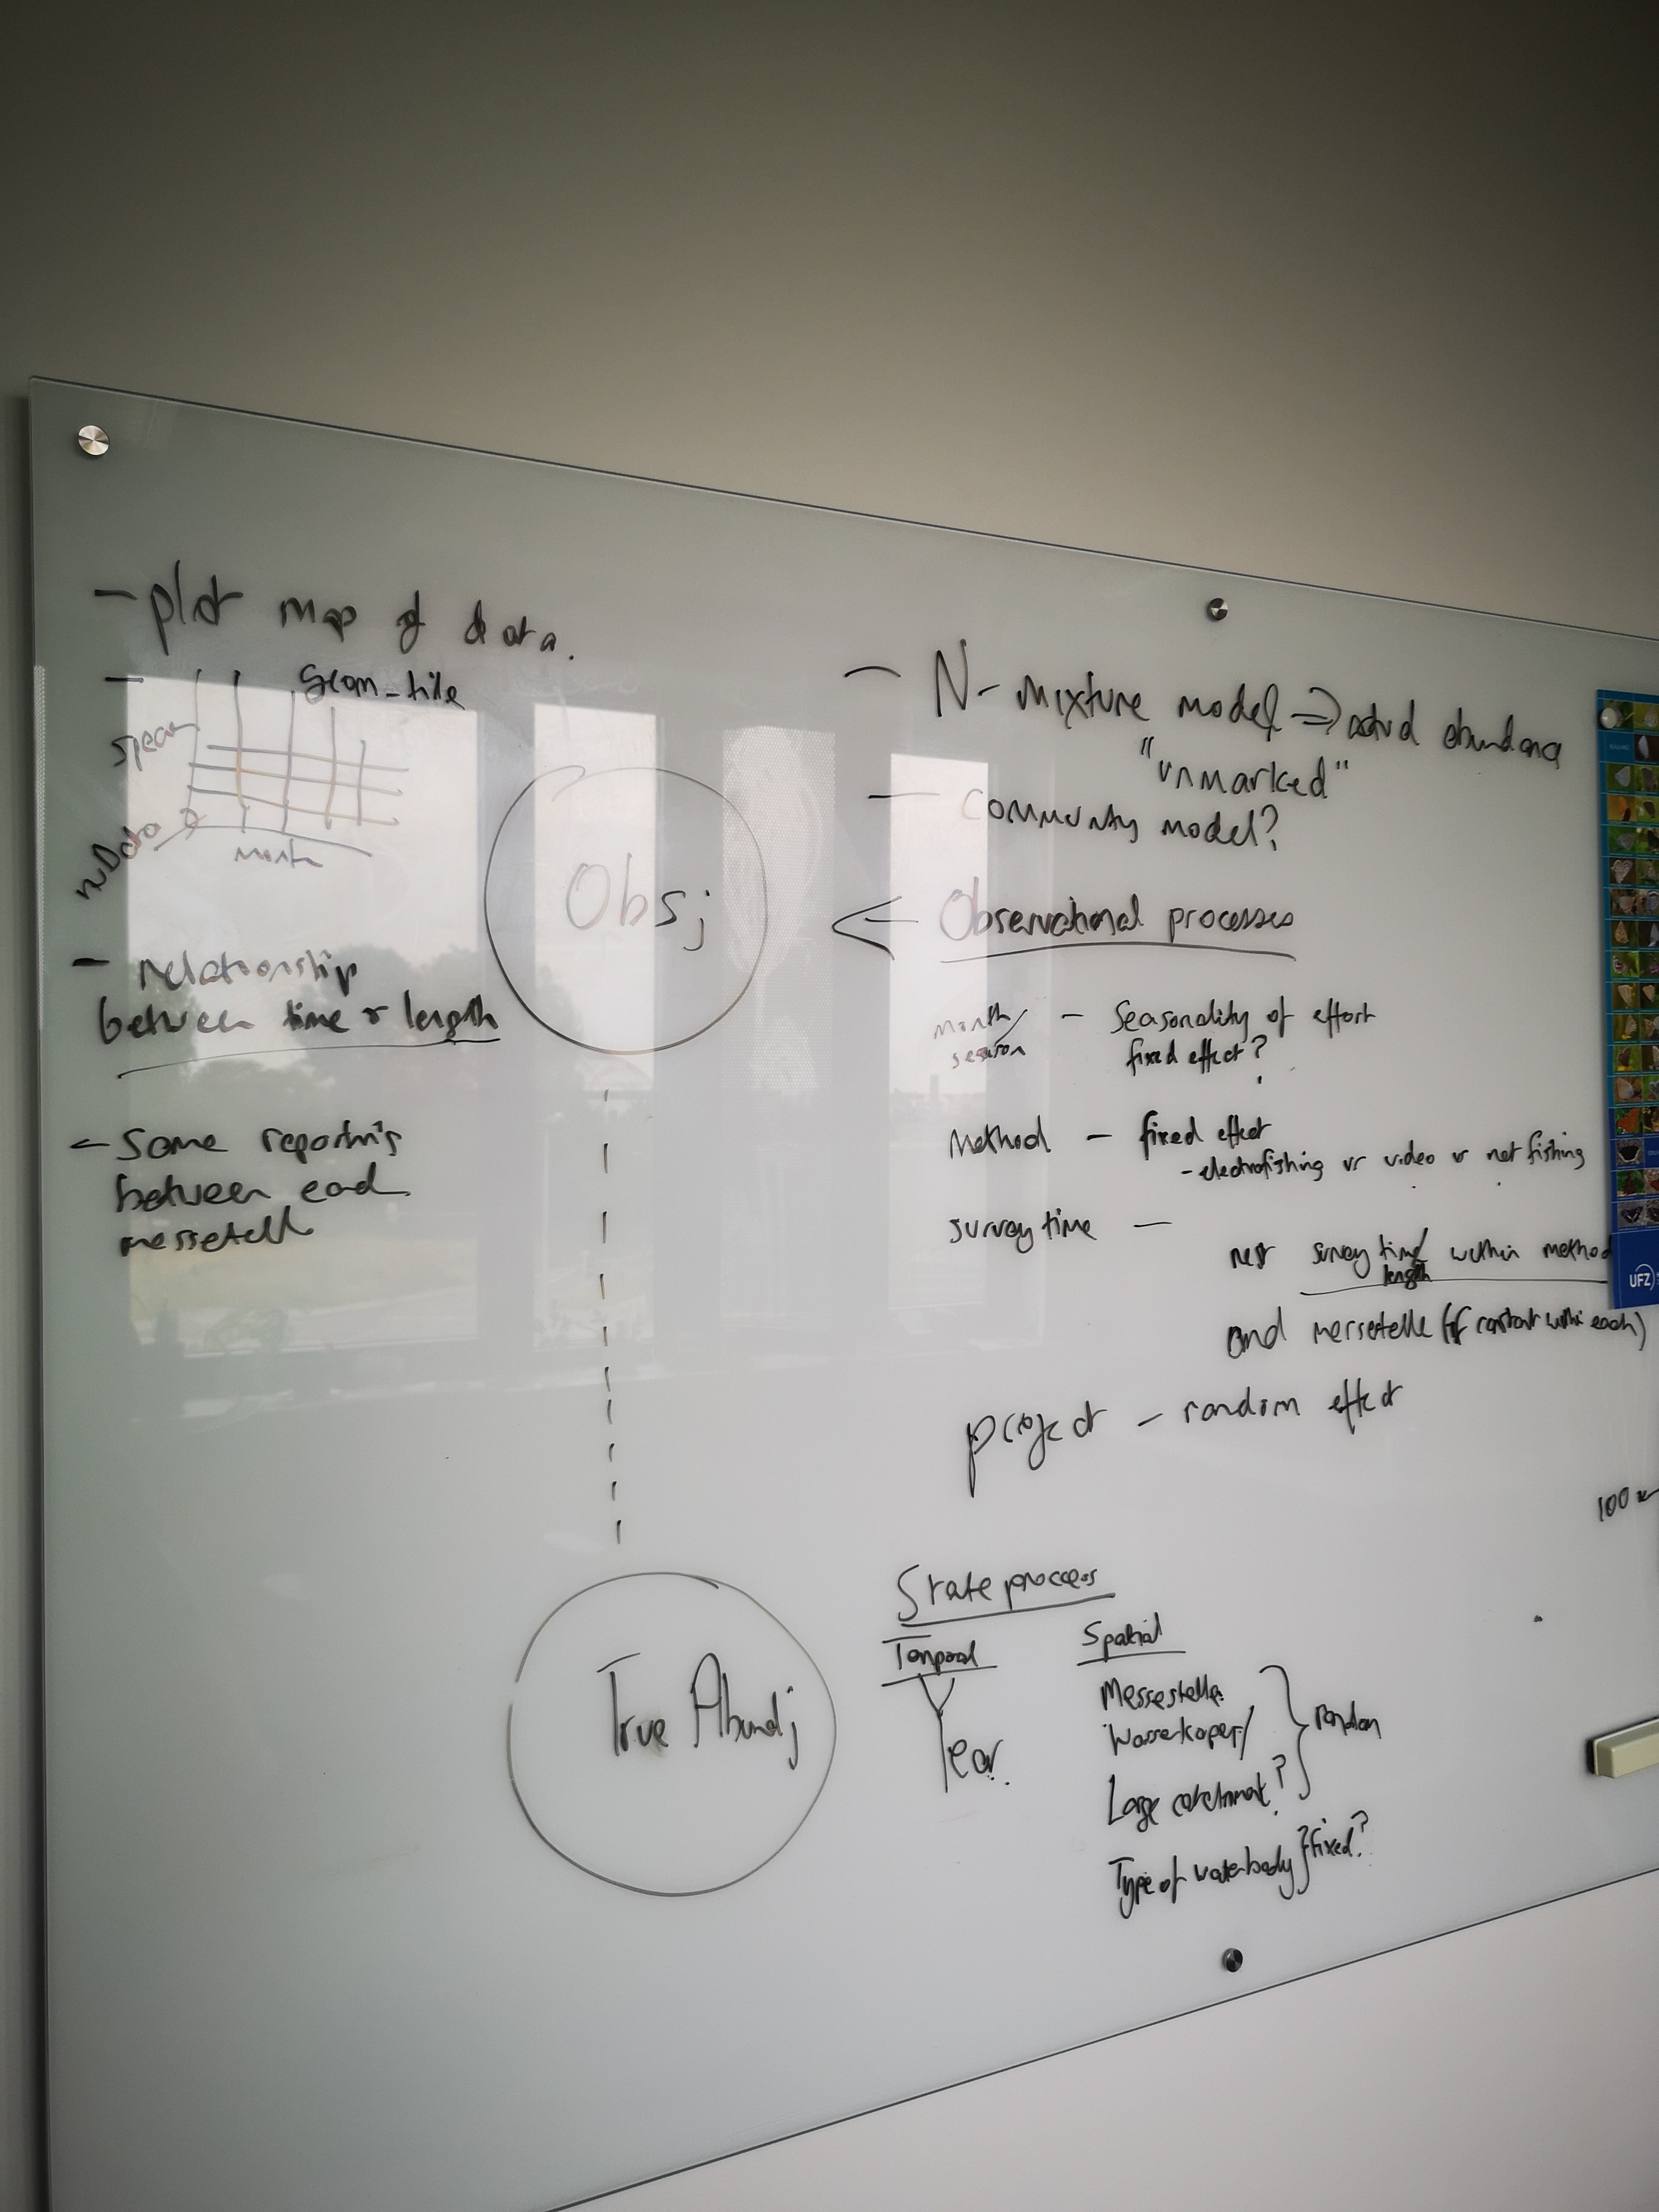 - plot map of data.
- geom_tile
species
noData
month
- relationship
between time & length
- Same reporting
between each
messestelle
Obsj
True Abundj
- N-mixture model => actual abundance
"unmarked"
- community model?
- Observational processes
month/
season
- Seasonality of effort
fixed effect?
Method - fixed effect
- electrofishing vs video vs net fishing
survey time -
nest survey time/ within method
length
and messestelle (if constant within each)
project - random effect
100
State process
Temporal
Year.
Spatial
Messestelle
Wasserkoper/
Large catchment?
random
Type of waterbody } fixed?
UFZ